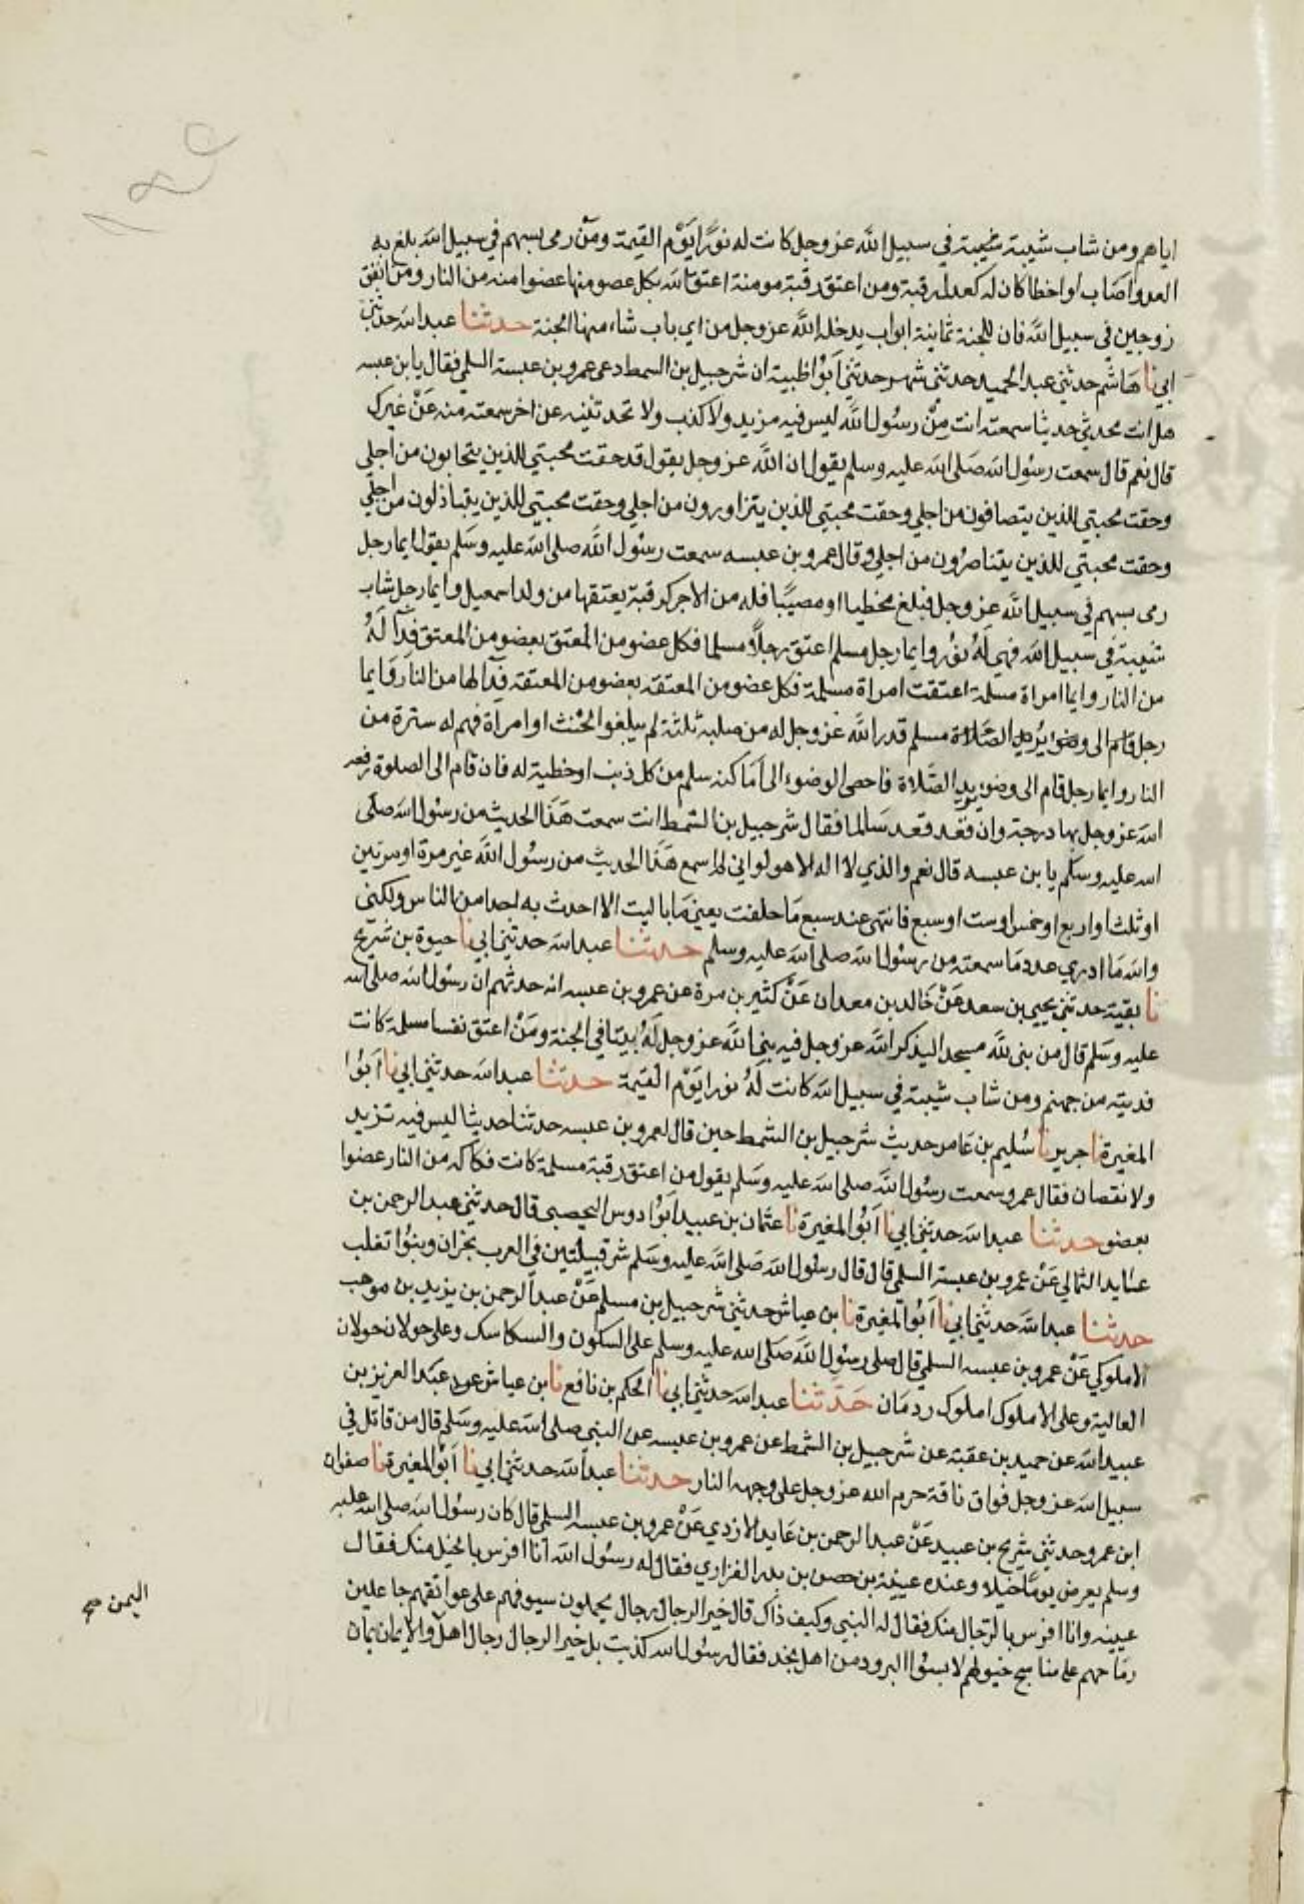 اياهم ومن شاب شيبة في سبيل الله عز وجل كانت له نورا يوم القيمة ومن رمى بسهم في سبيل الله بلغ به
العدو اصاب او اخطا كان له كعدل رقبة ومن اعتق رقبة مومنة اعتق الله بكل عضو منها عضوا منه من النار ومن انفق
زوجين في سبيل الله فان للجنة ثمانية ابواب يدخله الله عز وجل من اي باب شاء منها الجنة حدثنا عبد الله حدثني
ابي نا هاشم حدثني عبد الحميد حدثني شهر حدثني ابوا ظبية ان شرحبيل بن السمط دعى عمرو بن عبسة السلمي فقال يا بن عبسه
هل انت محدثي حديثا سمعته انت من رسول الله ليس فيه مزيد ولا كذب ولا تحدثنيه عن اخر سمعته منه عن غيرك
قال نعم قال سمعت رسول الله صلى الله عليه وسلم يقول ان الله عز وجل يقول قد حقت محبتي للذين يتحابون من اجلي
وحقت محبتي للذين يتصافون من اجلي وحقت محبتي للذين يتزاورون من اجلي وحقت محبتي للذين يتباذلون من اجلي
وحقت محبتي للذين يتناصرون من اجلي وقال عمرو بن عبسه سمعت رسول الله صلى الله عليه وسلم يقول ايما رجل
رمى بسهم في سبيل الله عز وجل فبلغ مخطيا او مصيبا فله من الاجر كرقبة يعتقها من ولد اسمعيل وايما رجل شاب
شيبة في سبيل الله فهي له نور وايما رجل مسلم اعتق رجلا مسلما فكل عضو من المعتق بعضو من المعتق فدآ له
من النار وايما امراة مسلمة اعتقت امراة مسلمة فكل عضو من المعتقه بعضو من المعتقه فدآ لها من النار وايما
رجل مسلم قدر الله عز وجل له من صلبه ثلثة لم يبلغوا الحنث او امراة فهم له سترة من
النار وايما رجل قام الى وضوء يريد الصلاة فاحصى الوضوء الى اماكنه سلم من كل ذنب او خطية له فان قام الى الصلوة رفعه
الله عز وجل بها درجة وان قعد قعد سالما فقال شرحبيل بن السمط انت سمعت هذا الحديث من رسول الله صلى
الله عليه وسلم يا بن عبسه قال نعم والذي لا اله الا هو لو اني لم اسمع هذا الحديث من رسول الله غير مرة او مرتين
او ثلث او اربع او خمس او ست او سبع فانتهى عند سبع ما حلفت يعني ما باليت الا احدث به احدا من الناس ولكني
والله ما ادري عدد ما سمعته من رسول الله صلى الله عليه وسلم حدثنا عبد الله حدثني ابي نا حيوة بن شريح
نا بقية حدثني يحيى بن سعد عن خالد بن معدان عن كثير بن مرة عن عمرو بن عبسه انه حدثهم ان رسول الله صلى الله
عليه وسلم قال من بنى لله مسجدا ليذكر الله عز وجل فيه بنى الله عز وجل له بيتا في الجنة ومن اعتق نفسا مسلمة كانت
فديته من جهنم ومن شاب شيبة في سبيل الله كانت له نورا يوم القيمة حدثنا عبد الله حدثني ابي نا ابوا
المغيرة نا جرير نا سليم بن عامر حديث شرحبيل بن السمط حين قال لعمرو بن عبسه حدثنا حديثا ليس فيه تزيد
ولا نقصان فقال عمرو سمعت رسول الله صلى الله عليه وسلم يقول من اعتق رقبة مسلمة كانت فكاكه من النار عضوا
بعضو حدثنا عبد الله حدثني ابي نا ابوا المغيرة نا عثمان بن عبيد ابوا دوس اليحصبي قال حدثني عبد الرحمن بن
عايد الثمالي عن عمرو بن عبسة السلمي قال قال رسول الله صلى الله عليه وسلم شر قبيلتين في العرب نجران وبنوا تغلب
حدثنا عبد الله حدثني ابي نا ابوا المغيرة نا بن عياش حدثني شرحبيل بن مسلم عن عبد الرحمن بن يزيد بن موهب
الاملوكي عن عمرو بن عبسه السلمي قال صلى رسول الله صلى الله عليه وسلم على السكون والسكاسك وعلى خولان خولان
العالية وعلى الاملوك املوك ردمان حدثنا عبد الله حدثني ابي نا الحكم بن نافع نا بن عياش عن عبد العزيز بن
عبيد الله عن حميد بن عقبة عن شرحبيل بن السمط عن عمرو بن عبسه عن النبي صلى الله عليه وسلم قال من قاتل في
سبيل الله عز وجل فواق ناقة حرم الله عز وجل على وجهه النار حدثنا عبد الله حدثني ابي نا ابوا المغيرة نا صفوان
ابن عمرو حدثني شريح بن عبيد عن عبد الرحمن بن عايد الازدي عن عمرو بن عبسه السلمي قال كان رسول الله صلى الله عليه
وسلم يعرض يوما خيلا وعنده عيينة بن حصن بن بدر الفزاري فقال له رسول الله انا افرس بالخيل منك فقال
عيينه وانا افرس بالرجال منك فقال له النبي وكيف ذاك قال خير الرجال رجال يحملون سيوفهم على عواتقهم جاعلين
رماحهم على مناسج خيولهم لابسوا البرود من اهل نجد فقال رسول الله كذبت بل خير الرجال رجال اهل والايمان يمان
اليمن صح